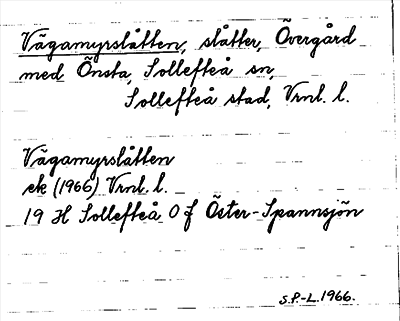 Vägamyrslåtten, slåtter, Övergård
med Önsta, Sollefteå sn,
Sollefteå stad, Vrnl. l.
Vägamyrslåtten
ek (1966) Vrnl. l.
19 H Sollefteå 0 f Öster-Spannsjön
S.P.-L. 1966.